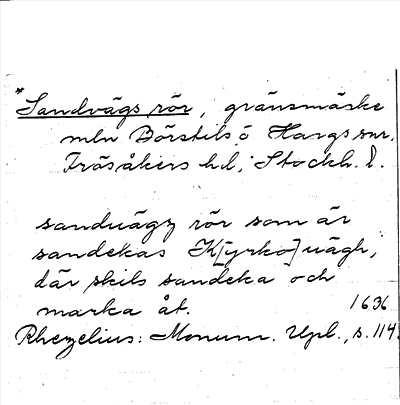 *Sandvägs rör, gränsmärke
mln Börstils o Hargs snr.
Frösåkers hd, Stockh. l.
sanduägz rör som är
sandekas K[yrko]uägh,
där skils sandeka och
marka åt. 1636
Rhezelius: Monum. Upl., s. 114.